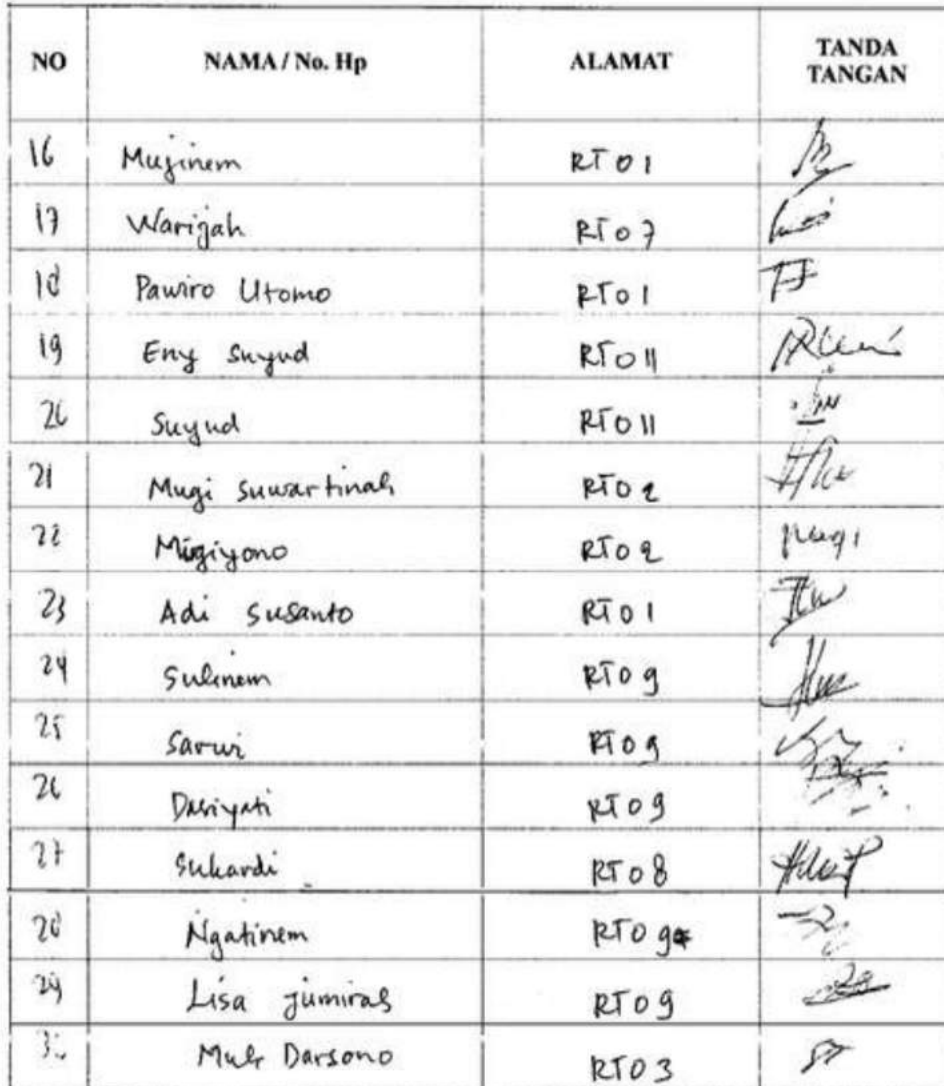 NO NAMA / No. Hp ALAMAT TANDA TANGAN
16 Mujinem RT 01
17 Warijah RT 07
18 Pawiro Utomo RT 01
19 Eny Suyud RT 011
20 Suyud RT 011
21 Mugi Suwartinah RT 02
22 Mugiyono RT 02 Mugi
23 Adi Susanto RT 01
24 Sulinem RT 09
25 Sarwi RT 09
26 RT 09
27 Sukardi RT 08
28 Ngatinem RT 09
29 Lisa Jumirah RT 09
30 Darsono RT 03